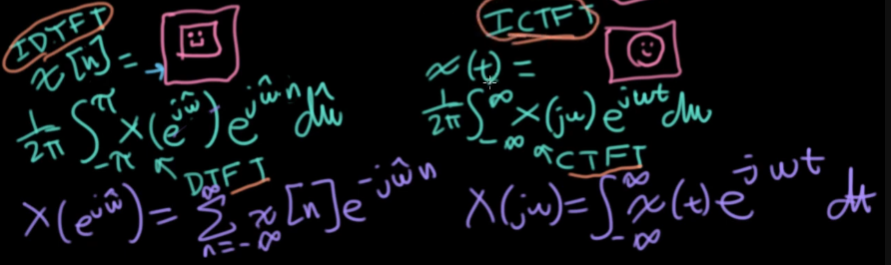 IDTFT
x[n] =
1/2π ∫_{-π}^{π} X(e^{jω̂}) e^{jω̂n} dω̂
DTFT
X(e^{jω̂}) = ∑_{n=-∞}^{∞} x[n] e^{-jω̂n}
ICTFT
x(t) =
1/2π ∫_{-∞}^{∞} X(jω) e^{jωt} dω
CTFT
X(jω) = ∫_{-∞}^{∞} x(t) e^{jωt} dt